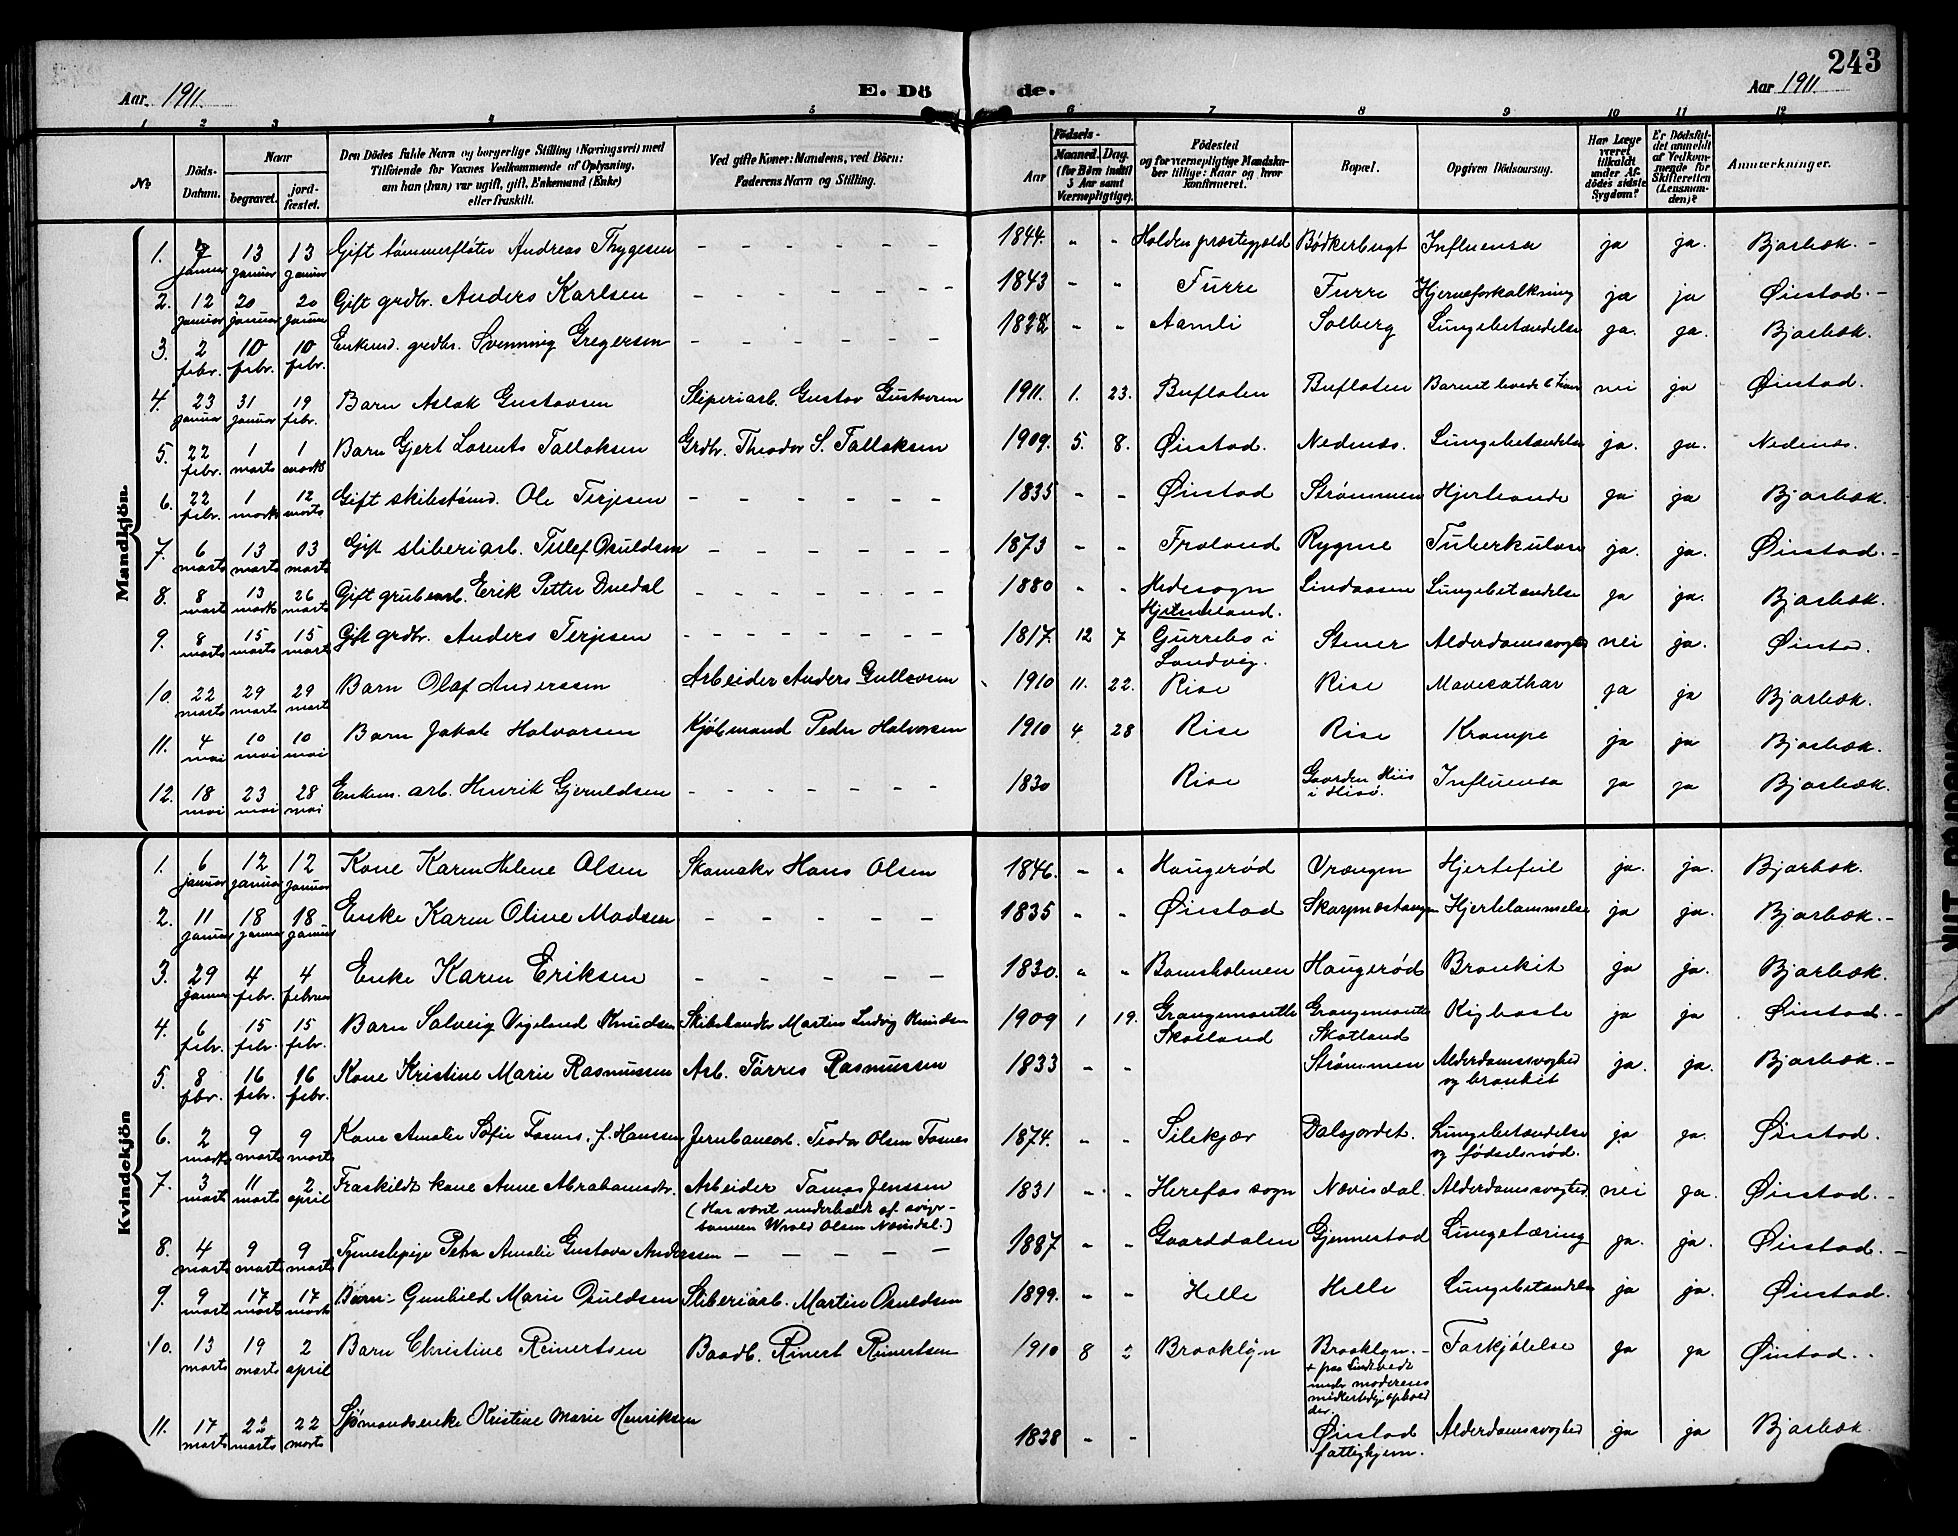 243
Aar 1911.
E. Döde.
Aar 1911
1 2 3 4 5 6 7 8 9 10 11 12
№
Döds-Datum.
Naar
begravet.
jordfæstet.
Den Dödes fulde Navn og borgerlige Stilling (Næringsvei) med Tilföiende for Voxnes Vedkommende af Oplysning, om han (hun) var ugift, gift, Enkemand (Enke) eller fraskilt.
Ved gifte Koner: Mandens, ved Börn: Faderens Navn og Stilling.
Födsels-
Aar
Maaned. Dag.
(for Börn indtil 5 Aar samt Værnepligtige).
Födested og for værnepligtige Mandskaber tillige: Naar og hvor konfirmeret.
Bopæl.
Opgiven Dödsaarsag.
Har Læge været tilkaldt under Afdödes sidste Sygdom?
Er Dödsfaldet anmeldt af Vedkommende for Skifteretten (Lensmanden)?
Anmærkninger.
Mandkjön.
1. 7 januar 13 januar 13 januar Gift tømmerfløter Andreas Thygesen – – – – – – 1844. " " Holden præstegjæld Bødkerbugt Influensa ja ja. Bjorbæk. –
2. 12 januar 20 januar 20 januar Gift grdbr. Anders Karlsen – – – – – – 1843 – " Furre Furre Hjerneforkalkning ja ja Øiestad. –
3. 2 febr. 10 febr. 10 febr. Enkemd. grdbr. Svenning Gregersen – – – – – – 1822 – – Aamli Solberg Lungebetændelse ja. ja. Bjorbæk.
4. 23 januar 31 januar 19 febr. Barn Aslak Gustavsen Sliperiarb. Gustav Gustavsen 1911. 1. 23. Bufloten Bufloten Barnet levede 6 tim nei ja Øiestad.
5. 22 febr. 1 marts 1 marts Barn Gjert Lorents Tallaksen Grdbr. Theodor S. Tallaksen 1909. 5. 8. Øiestad. Nedenæs. Lungebetændelse ja. ja. Nedenæs.
6. 22 febr. 1 marts 12 marts Gift skibstømd. Ole Terjesen – – – – – – 1835 – – Øiestad Strømmen ja ja Bjorbæk.
7. 6 marts 13 marts 13 marts Gift sliberiarb. Tellef Osuldsen – – – – – – 1873 – – Froland Rygene Tuberkulose ja. ja. Øiestad. –
8. 8 marts 13 marts 26 marts Gift grubearb. Erik Petter Duedal 1880 " " Hedesogn Lindaasen Lungebetændelse ja ja. Bjorbæk.
9. 8 marts 15 marts 15 marts Gift grdbr. Anders Terjesen – – – – – – 1817. 12 7 Gurrebo i Landvig. Stener Alderdomssvaghed nei ja. Øiestad
10. 22 marts 29 marts 29 marts Barn Olaf Anderssen Arbeider Anders Gullovsen 1910 11. 22. Rise Rise Mavecathar ja ja Bjorbæk.
11. 4 mai 10 mai 10 mai Barn Jakob Halvorsen Kjøbmand Peder Halvorsen 1910 4 28 Rise Rise Krampe ja ja Bjorbæk.
12. 18 mai 23 mai 28 mai Enkem. arb. Henrik Gjeruldsen – – – – – – 1830 Rise Gaarden Hiis i Hisø. Influensa ja ja Bjorbæk.
Kvindekjön
1. 6 januar 12 januar 12 januar Kone Karen Helene Olsen Skomaker Hans Olsen 1846. – " Haugerød Vrængen Hjertefeil ja. ja. Bjorbæk.
2. 11 januar 18 januar 18 januar Enke Karen Oline Madsen – – – – – 1835 " " Øiestad Skarpnæstangen Hjertelammelse ja ja. Bjorbæk. –
3. 29 januar 4 febr. 4 februar Enke Karen Eriksen – – – – – 1830. " " Bomsholmen Haugerød Bronkit ja ja. Bjorbæk.
4. 6 febr. 15 febr. 15 febr. Barn Solveig Vigeland Knudsen Martin Ludvig Knudsen 1909 1 19. Grangemouth Skotland Grangemouth Skotland Kighoste ja ja Øiestad. –
5. 8 febr. 16 febr. 16 febr. Kone Kristine Marie Rasmussen Arb. Tørres Rasmussen 1833 – – Strømmen Alderdomssvaghed og bronkit ja. ja. Bjorbæk. –
6. 2 marts 9 marts 9 marts Kone Amalie Sofie Fosnes, f. Hanssen Jernbanearb. Teodor Olsen Fosnes 1874. – – Silekjær Dalsjordet. Lungebetændelse og fødselsnød. ja ja. Øiestad.
7. 3 marts 11 marts 2 april Fraskildt kone Anne Abrahamsdtr. Arbeider Tomas Jenssen 1831 – – Herefos sogn Nævisdal. Alderdomssvaghed nei ja. Øiestad. –
(Har været underholdt af svigersønnen Olsen Nævisdal.)
8. 4 marts 9 marts 9 marts Tjenestepige Petra Amalie Gustava Anderssen – – – – – 1887 – – Gaarddalen Gjennestad Lungetæring ja. ja. Øiestad. –
9. 9 marts 17 marts 17 marts Barn – Gunhild Marie Osuldsen Sliberiarb. Martin Osuldsen 1899. – – Helle Helle Lungebetændelse ja ja. Øiestad.
10. 13 marts 19 marts 2 april Barn Christine Reinertsen Baadb. Reinert Reinertsen 1910 8 2 Brooklyn Brooklyn. – + paa under moderens midlertidige ophold der. Forkjølelse ja ja Øiestad.
11. 17 marts 22 marts 22 marts Sjømandsenke Kristine Marie Henriksen 1838 – – Øiestad fattighjem. Alderdomssvaghed ja ja Bjorbæk.